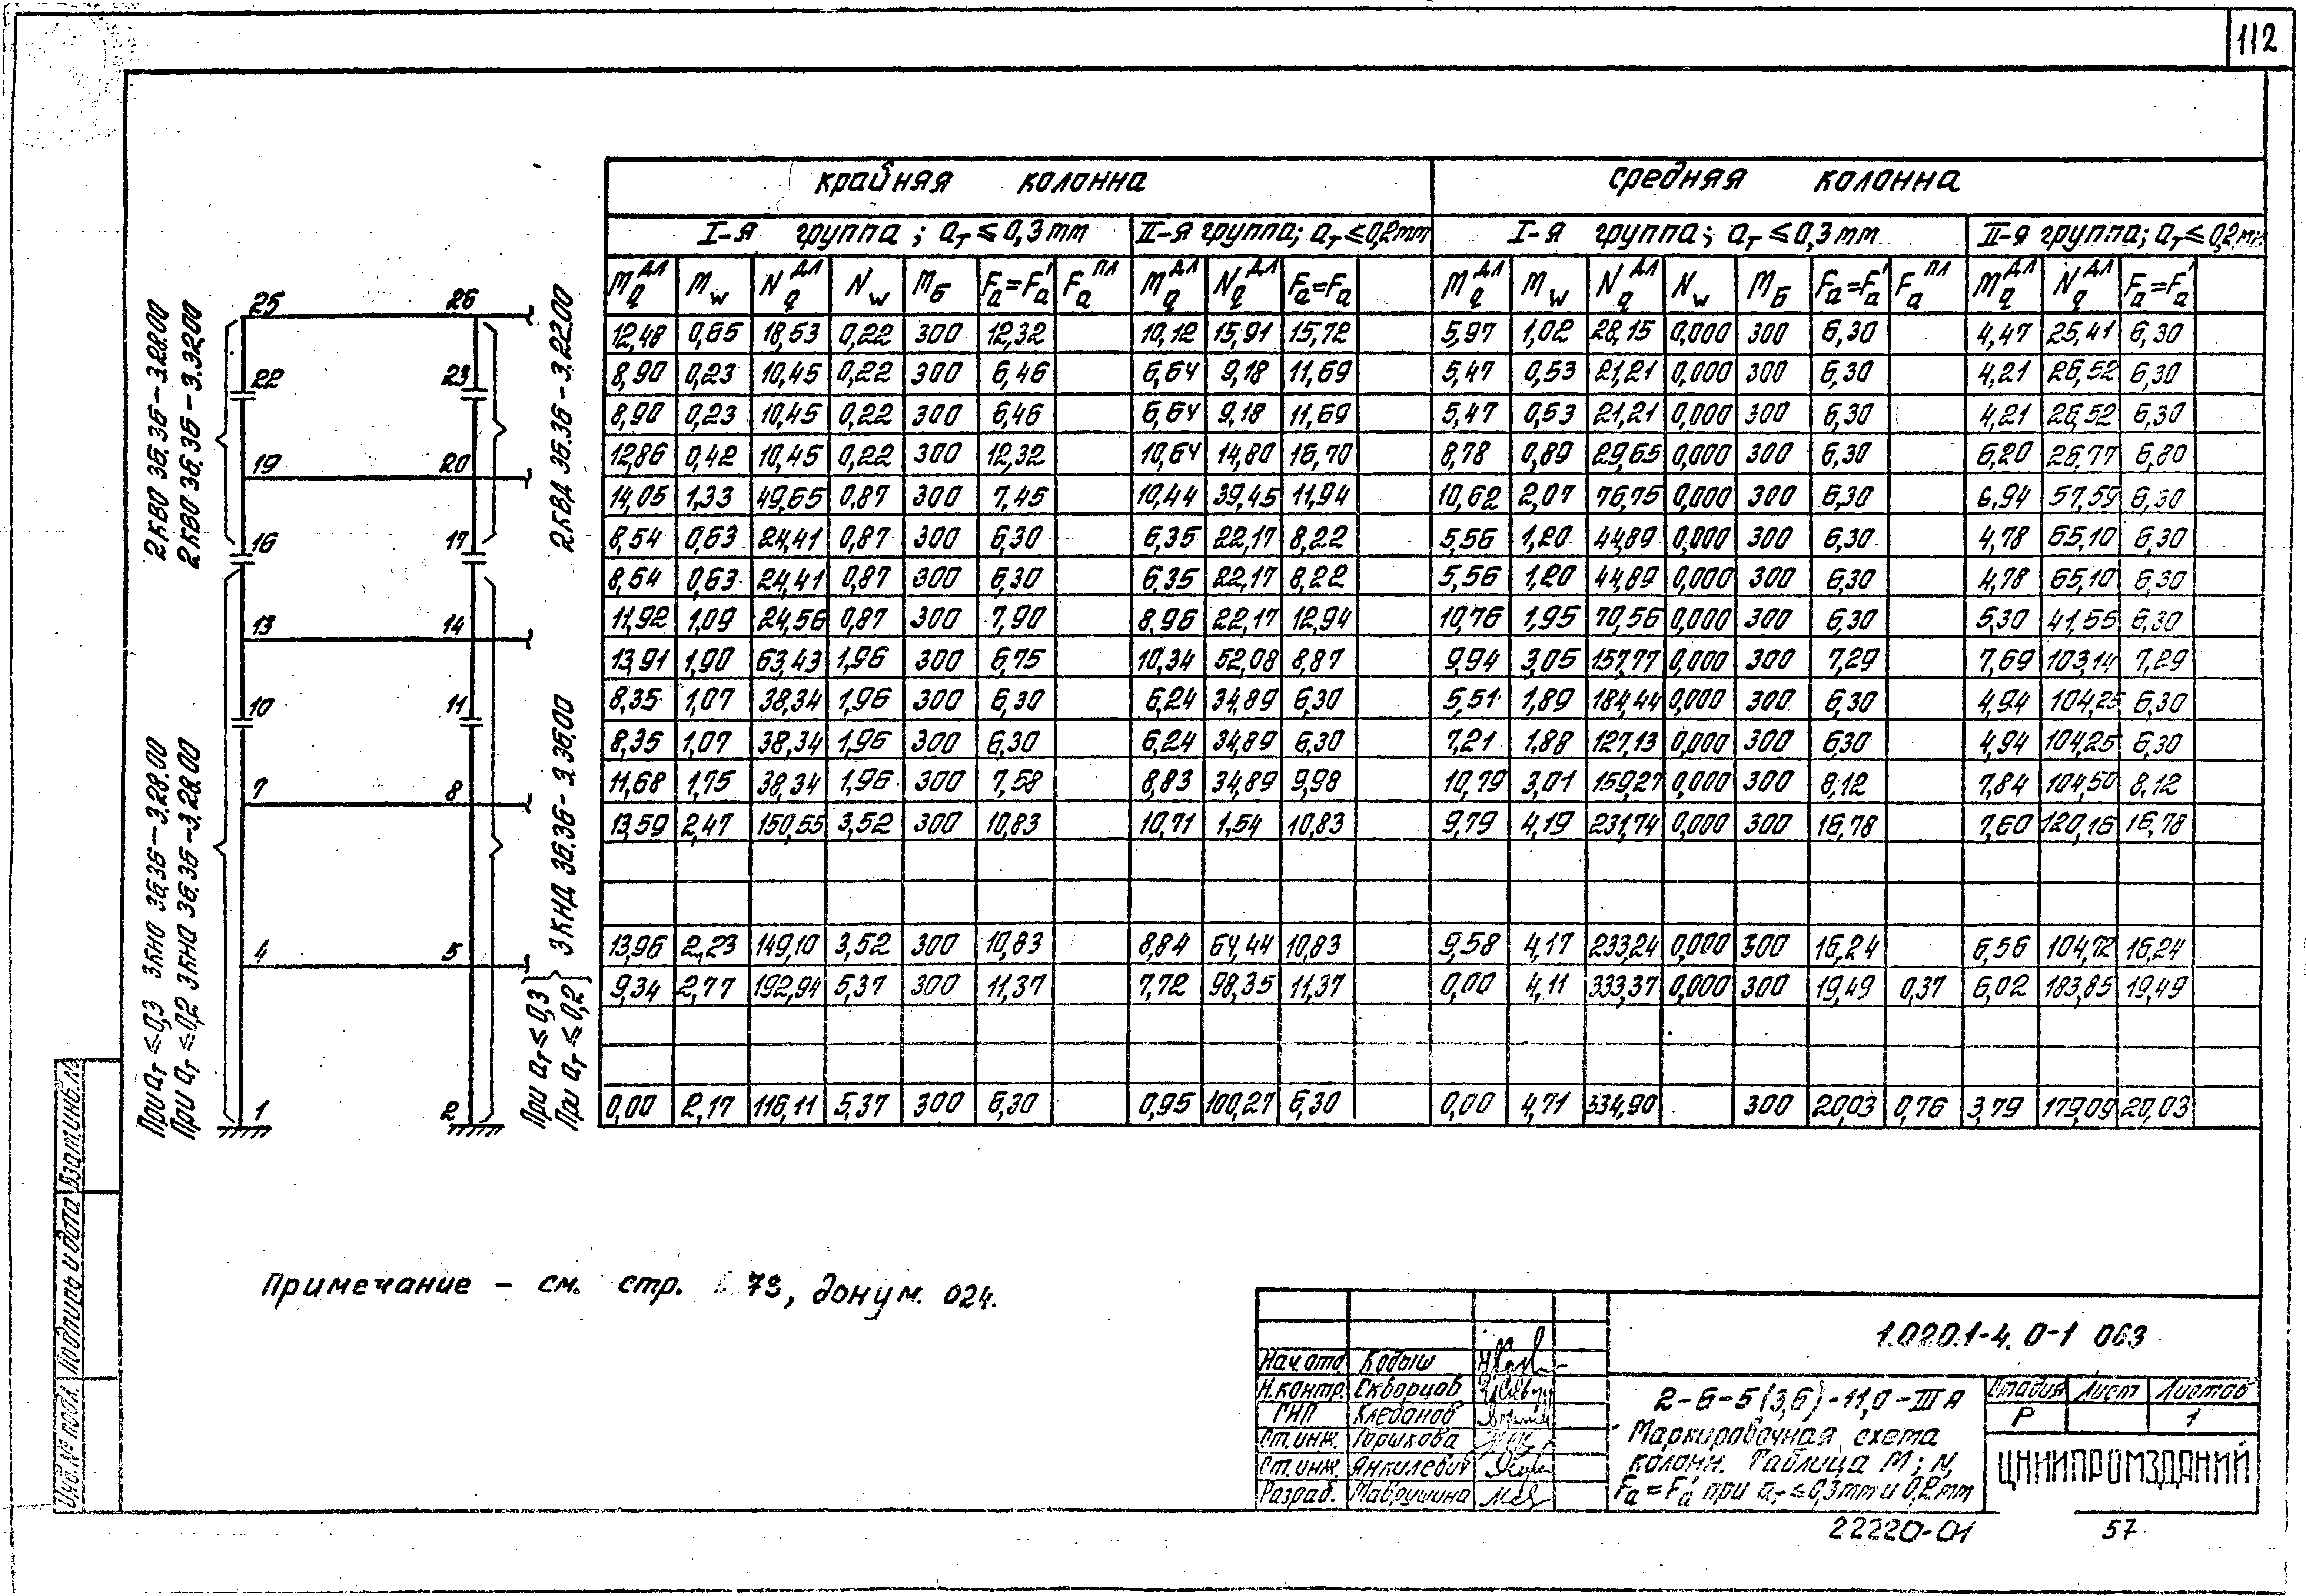 112
крайняя колонна
средняя колонна
I-я группа; aт ≤ 0,3 mm
II-я группа; aт ≤ 0,2 mm
I-я группа; aт ≤ 0,3 mm
II-я группа; aт ≤ 0,2 мм
Mq дл Mw Nq дл Nw Mб Fa=F'a Fa пл Mq дл Nq дл Fa=Fa Mq дл Mw Nq дл Nw Mб Fa=F'a Fa пл Mq дл Nq дл Fa=F'a
12,48 0,65 18,53 0,22 300 12,32 10,12 15,91 15,72 5,97 1,02 28,15 0,000 300 6,30 4,47 25,41 6,30
8,90 0,23 10,45 0,22 300 6,46 6,64 9,18 11,69 5,47 0,53 21,21 0,000 300 6,30 4,21 26,52 6,30
8,90 0,23 10,45 0,22 300 6,46 6,64 9,18 11,69 5,47 0,53 21,21 0,000 300 6,30 4,21 26,52 6,30
12,86 0,42 10,45 0,22 300 12,32 10,64 14,80 16,70 8,78 0,89 29,65 0,000 300 6,30 6,20 26,77 6,80
14,05 1,33 49,65 0,87 300 7,45 10,44 39,45 11,94 10,62 2,07 76,75 0,000 300 6,30 6,94 57,59 6,30
8,54 0,63 24,41 0,87 300 6,30 6,35 22,17 8,22 5,56 1,20 44,89 0,000 300 6,30 4,78 65,10 6,30
8,54 0,63 24,41 0,87 300 6,30 6,35 22,17 8,22 5,56 1,20 44,89 0,000 300 6,30 4,78 65,10 6,30
11,92 1,09 24,56 0,87 300 7,90 8,96 22,17 12,94 10,76 1,95 70,56 0,000 300 6,30 5,30 41,55 6,30
13,91 1,90 63,43 1,96 300 6,75 10,34 52,08 8,87 9,94 3,05 157,77 0,000 300 7,29 7,69 103,14 7,29
8,35 1,07 38,34 1,96 300 6,30 6,24 34,89 6,30 5,51 1,89 184,44 0,000 300 6,30 4,94 104,25 6,30
8,35 1,07 38,34 1,96 300 6,30 6,24 34,89 6,30 7,21 1,88 127,13 0,000 300 6,30 4,94 104,25 6,30
11,68 1,75 38,34 1,96 300 7,58 8,83 34,89 9,98 10,79 3,01 159,27 0,000 300 8,12 7,84 104,50 8,12
13,59 2,47 150,55 3,52 300 10,83 10,71 1,54 10,83 9,79 4,19 231,74 0,000 300 16,78 7,60 120,16 16,78
13,96 2,23 149,10 3,52 300 10,83 8,84 64,44 10,83 9,58 4,17 233,24 0,000 300 16,24 6,56 104,72 16,24
9,34 2,77 192,94 5,37 300 11,37 7,72 98,35 11,37 0,00 4,11 333,37 0,000 300 19,49 0,37 6,02 183,85 19,49
0,00 2,17 116,11 5,37 300 6,30 0,95 100,27 6,30 0,00 4,71 334,90 300 20,03 0,76 3,79 179,09 20,03
25 26
22 23
19 20
16 17
13 14
10 11
7 8
4 5
1 2
2КВО 36.36-3.28.00
2КВО 36.36-3.32.00
2КВД 36.36-3.22.00
При aт ≤ 0,3 3КНО 36.36-3.28.00
При aт ≤ 0,2 3КНО 36.36-3.28.00
При aт ≤ 0,3
При aт ≤ 0,2
3КНД 36.36-3.36.00
Примечание - см. стр. 79, докум. 024.
Инв.№ подл. Подпись и дата Взам.инв.№
1.020.1-4. 0-1 063
Нач.отд. Кодыш
Н.контр. Скворцов
ГИП Клебанов
Ст.инж. Горшкова
Ст.инж. Янкилевич
Разраб. Маврушина
2-6-5(3,6)-11,0-III А
Маркировочная схема
колонн. Таблица M; N,
Fa=F'a при aт ≤ 0,3mm и 0,2mm
Стадия Лист Листов
Р 1
ЦНИИПРОМЗДАНИЙ
22220-01 57